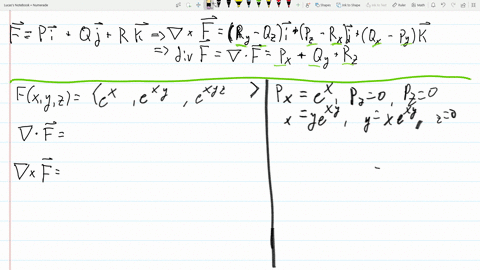 Lucas's Notebook - Numerade
F⃗ = Pi⃗ + Qj⃗ + RK⃗ ⇒ ∇ × F⃗ = (Ry - Qz)i⃗ + (Pz - Rx)j⃗ + (Qx - Py)K⃗
⇒ div F⃗ = ∇ · F⃗ = Px + Qy + Rz
F(x,y,z) = ⟨e^x , e^xy , e^xyz ⟩
∇ · F⃗ =
∇ × F⃗ =
Px = e^x, Pz=0, Pz=0
x = ye^xy, y= xe^xy, z=0
=